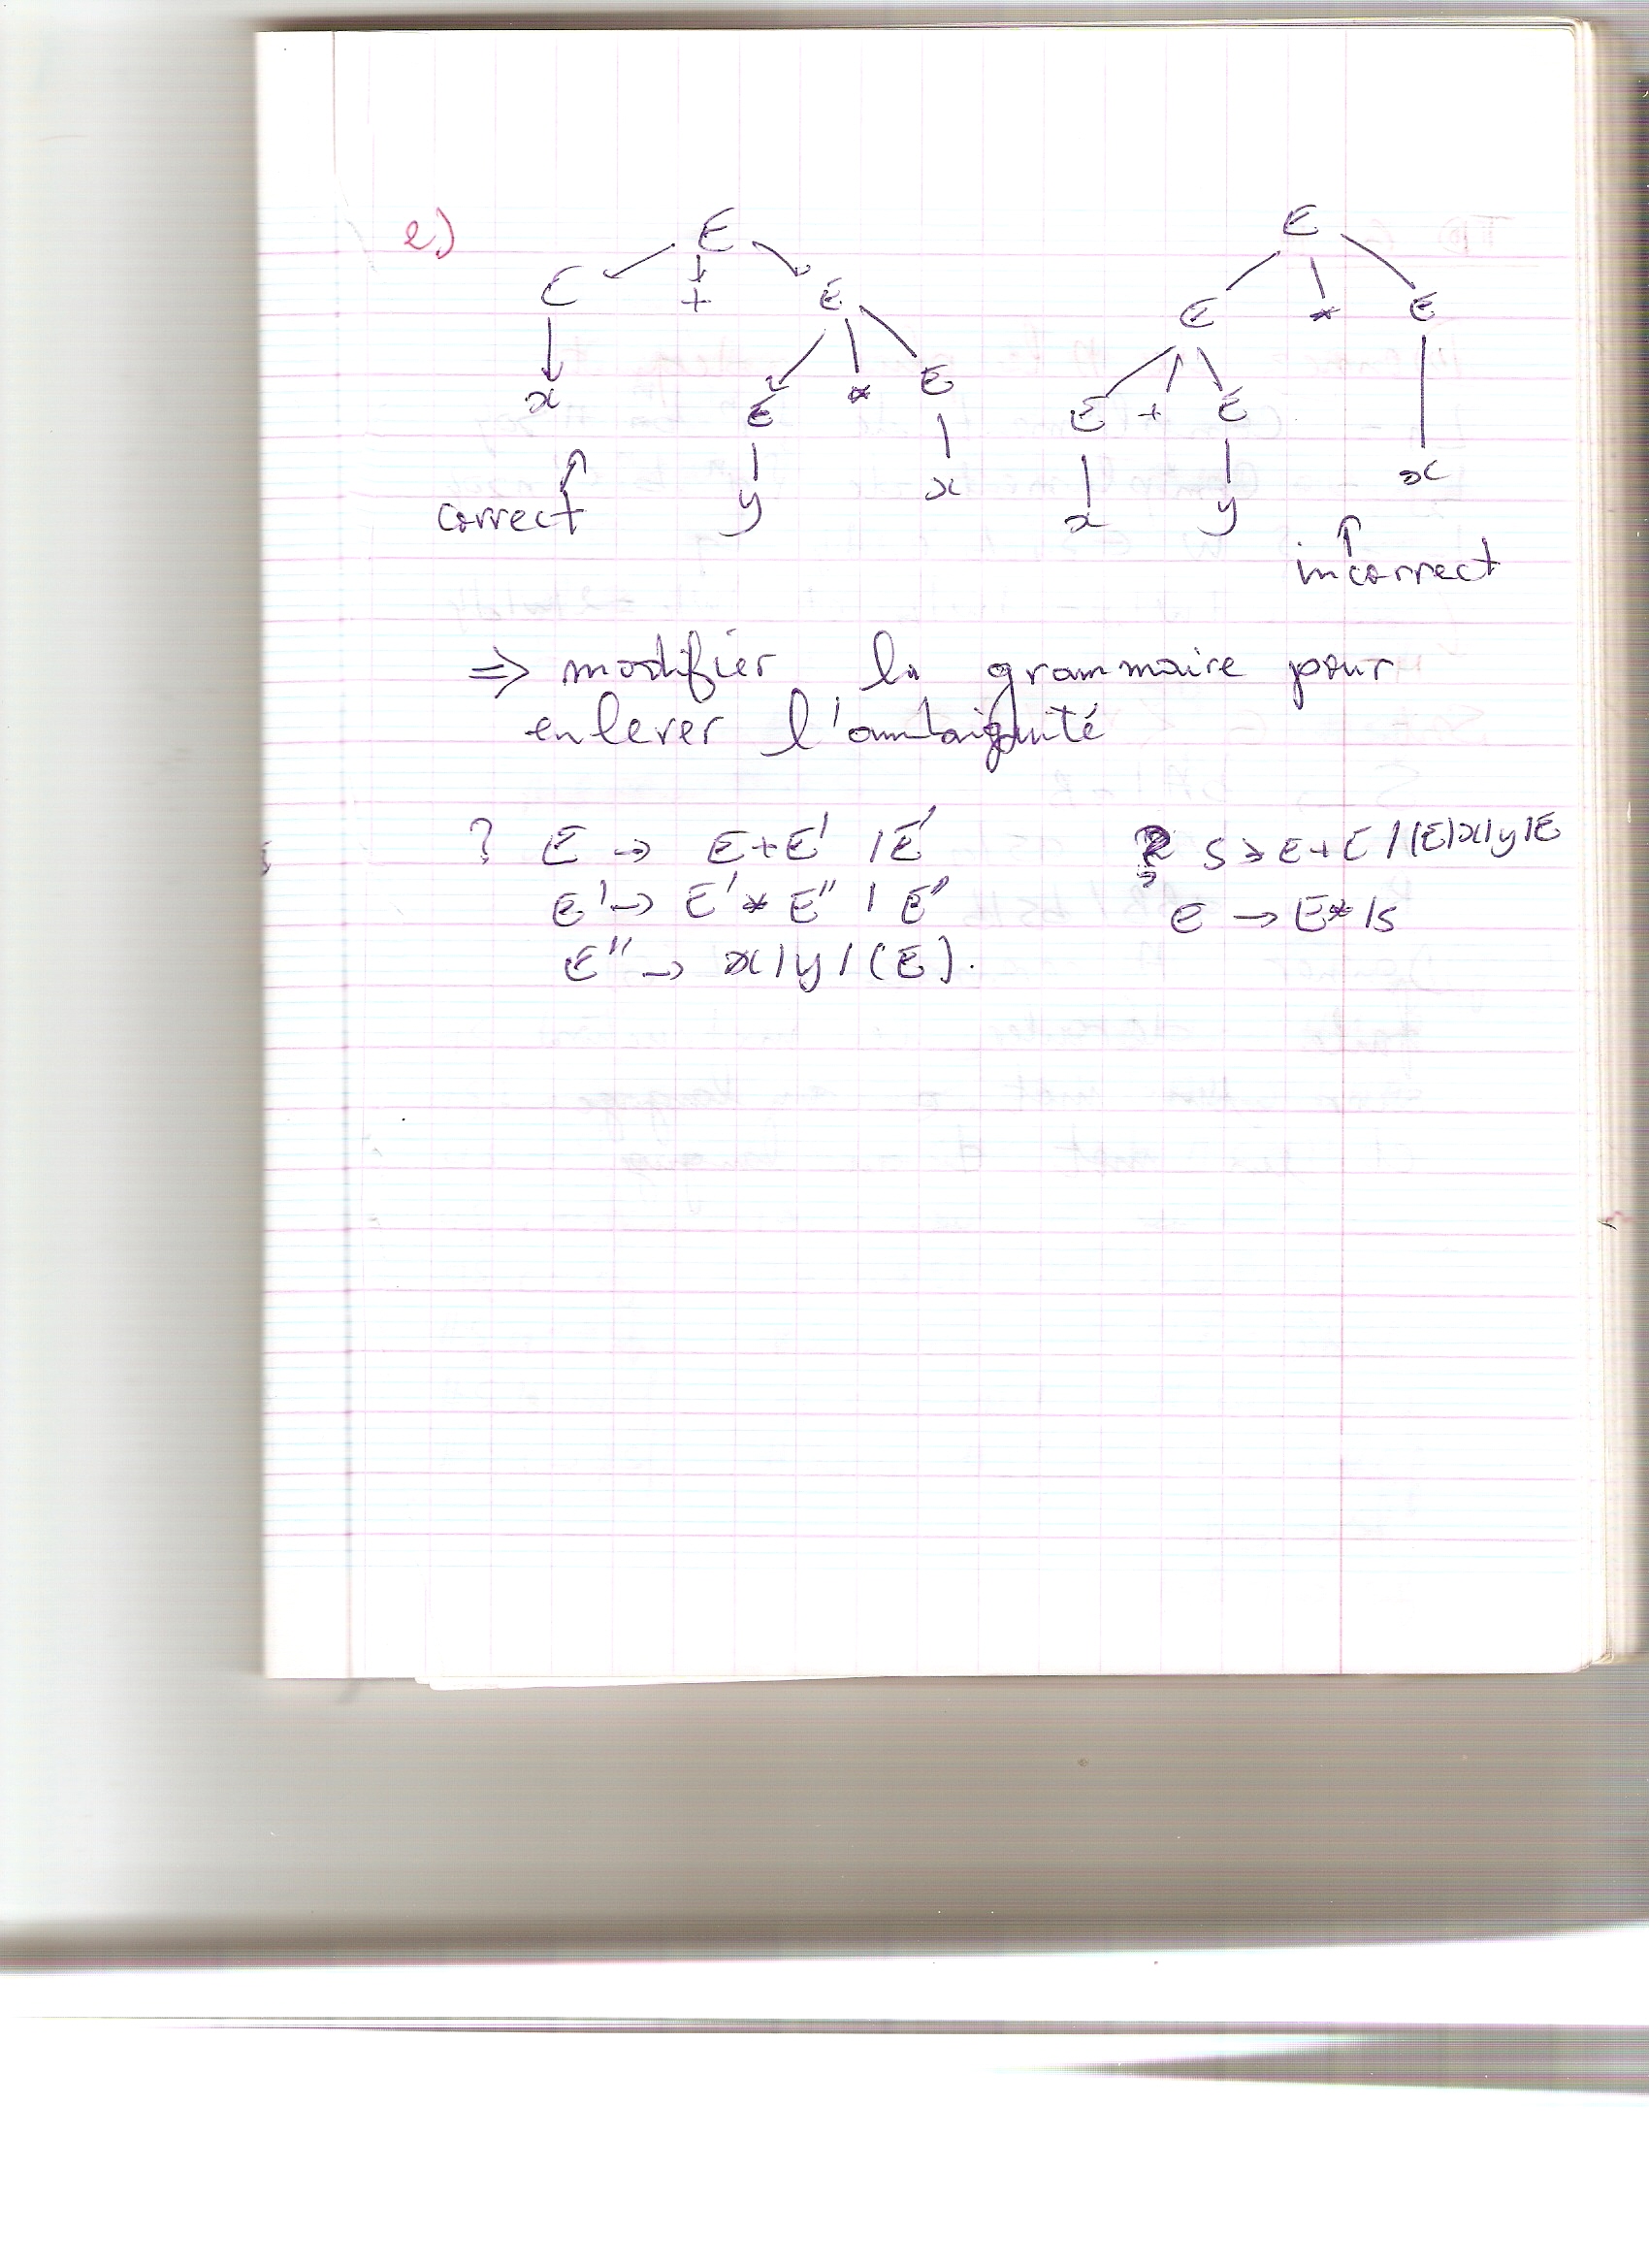 2)
E
E + E
x
E * E
y x
correct
E
E * E
E + E
x y x
incorrect
=> modifier la grammaire pour
enlever l'ambiguité
? E → E+E' / E'
E' → E' * E'' / E''
E'' → x/y/(E).
? S → E+E /(E)x/y/E
E → E* /S